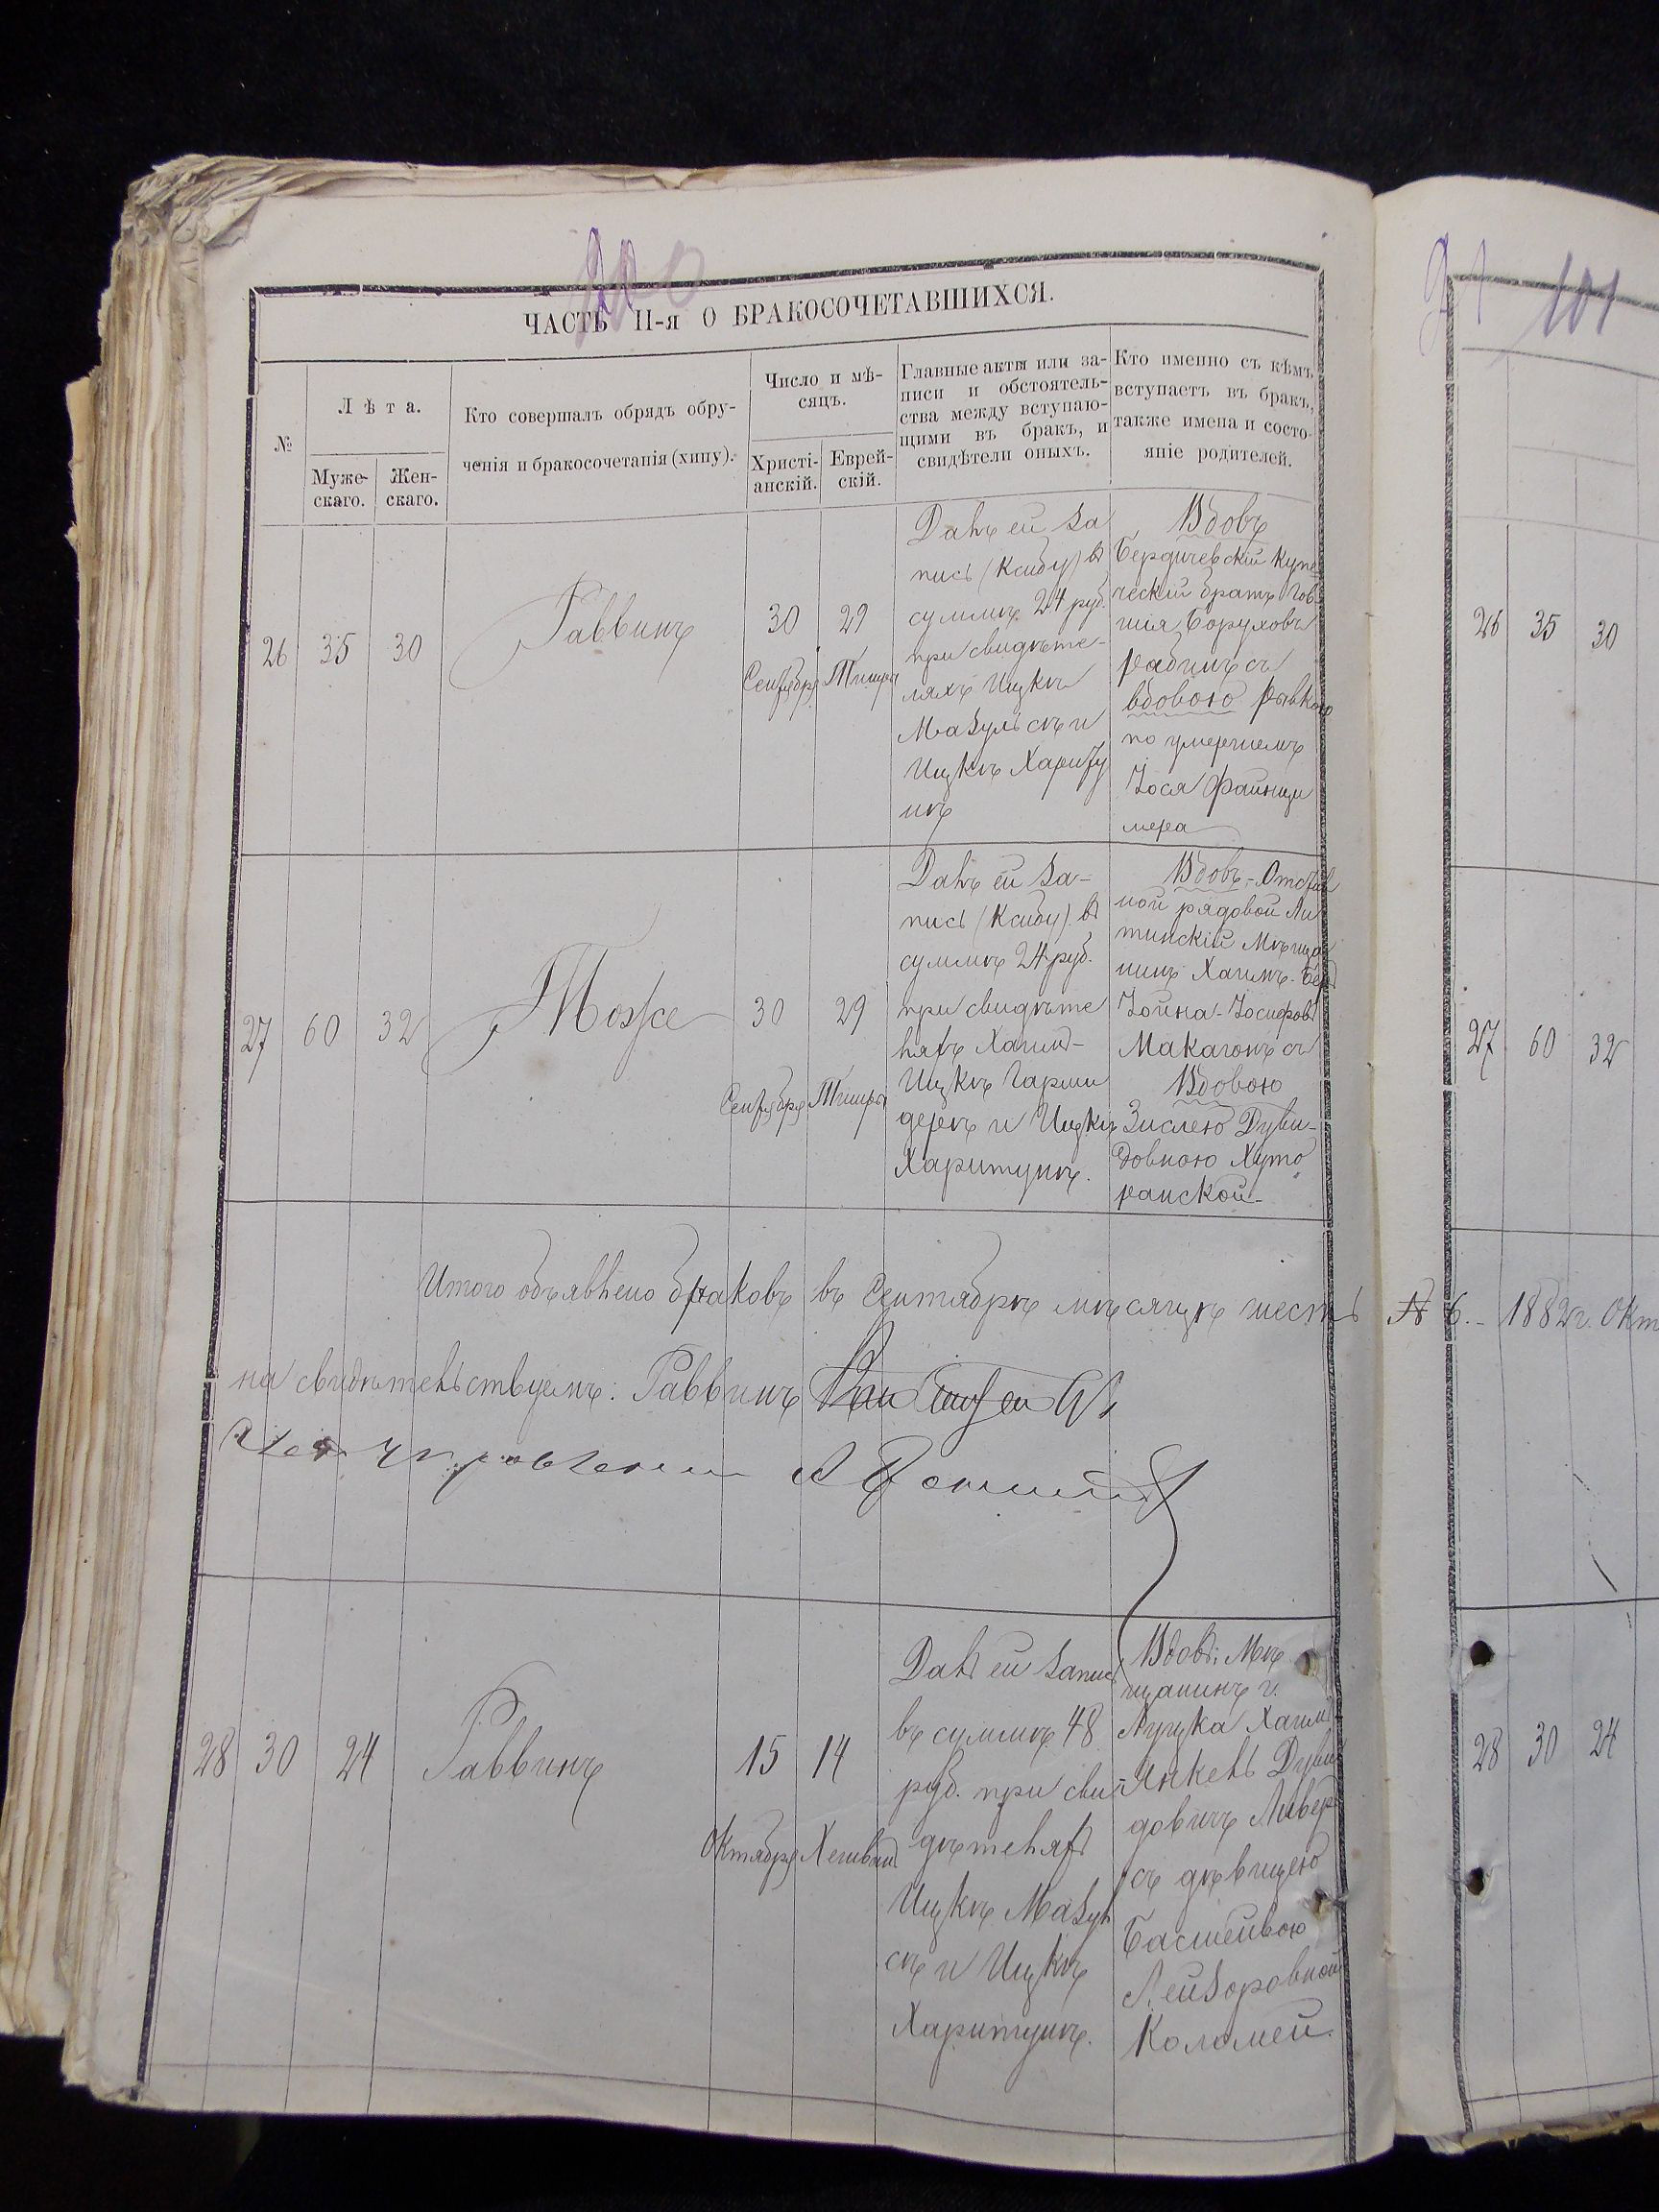 ЧАСТЬ II-я О БРАКОСОЧЕТАВШИХСЯ.
101
№
Лѣта.
Муже-
скаго.
Жен-
скаго.
Кто совершалъ обрядъ обру-
ченія и бракосочетанія (хипу).
Число и мѣ-
сяцъ.
Христі-
анскій.
Еврей-
скій.
Главные акты или за-
писи и обстоятель-
ства между вступаю-
щими въ бракъ, и
свидѣтели оныхъ.
Кто именно съ кѣмъ
вступаетъ въ бракъ,
также имена и состо-
яніе родителей.
26 35 30
Раввинъ
30
Сентября
29
Тишри
Далъ ей за
пись (Ксибу) въ
суммѣ 24 руб.
при свидѣте-
ляхъ Ицкѣ
Мазульскѣ и
Ицкѣ Хариту
нѣ
Вдовъ
Бердичевскій купе
ческій братъ
Боруховъ
съ
вдовою Рывкою
по умершемъ
Іося
мера
27 60 32
Тоже
30
Сентября
29
Тишри
Далъ ей За-
пись (Ксибу) въ
суммѣ 24 руб.
при свидѣте
ляхъ Хаимъ-
Ицкѣ Гарши
дерѣ и Ицкѣ
Харитунѣ.
Вдовъ,- Отстав
ной рядовой Ли
тинскій Мѣща
нинъ Хаимъ-Бер
Іойна-Іосифовъ
Макагонъ съ
Вдовою
Зислею Дуви-
довною Хуто
ранской-
Итого объявлено браковъ въ Сентябрѣ мѣсяцѣ шесть № 6.- 1882 г. Окт
на свидѣтельствуемъ: Раввинъ
28 30 24
Раввинъ
15
Октября
14
Хешванъ
Далъ ей Запись
въ суммѣ 48
руб. при сви-
дѣтеляхъ
Ицкѣ Мазуль
скѣ и Ицкѣ
Харитунѣ.
Вдовъ: Мѣ
щанинъ г.
Луцка Хаимъ
Янкель Дуви
довичъ Ливер
съ дѣвицею
Басшейвою
Лейзоровной
Коломей.
26 35 30
27 60 32
28 30 24